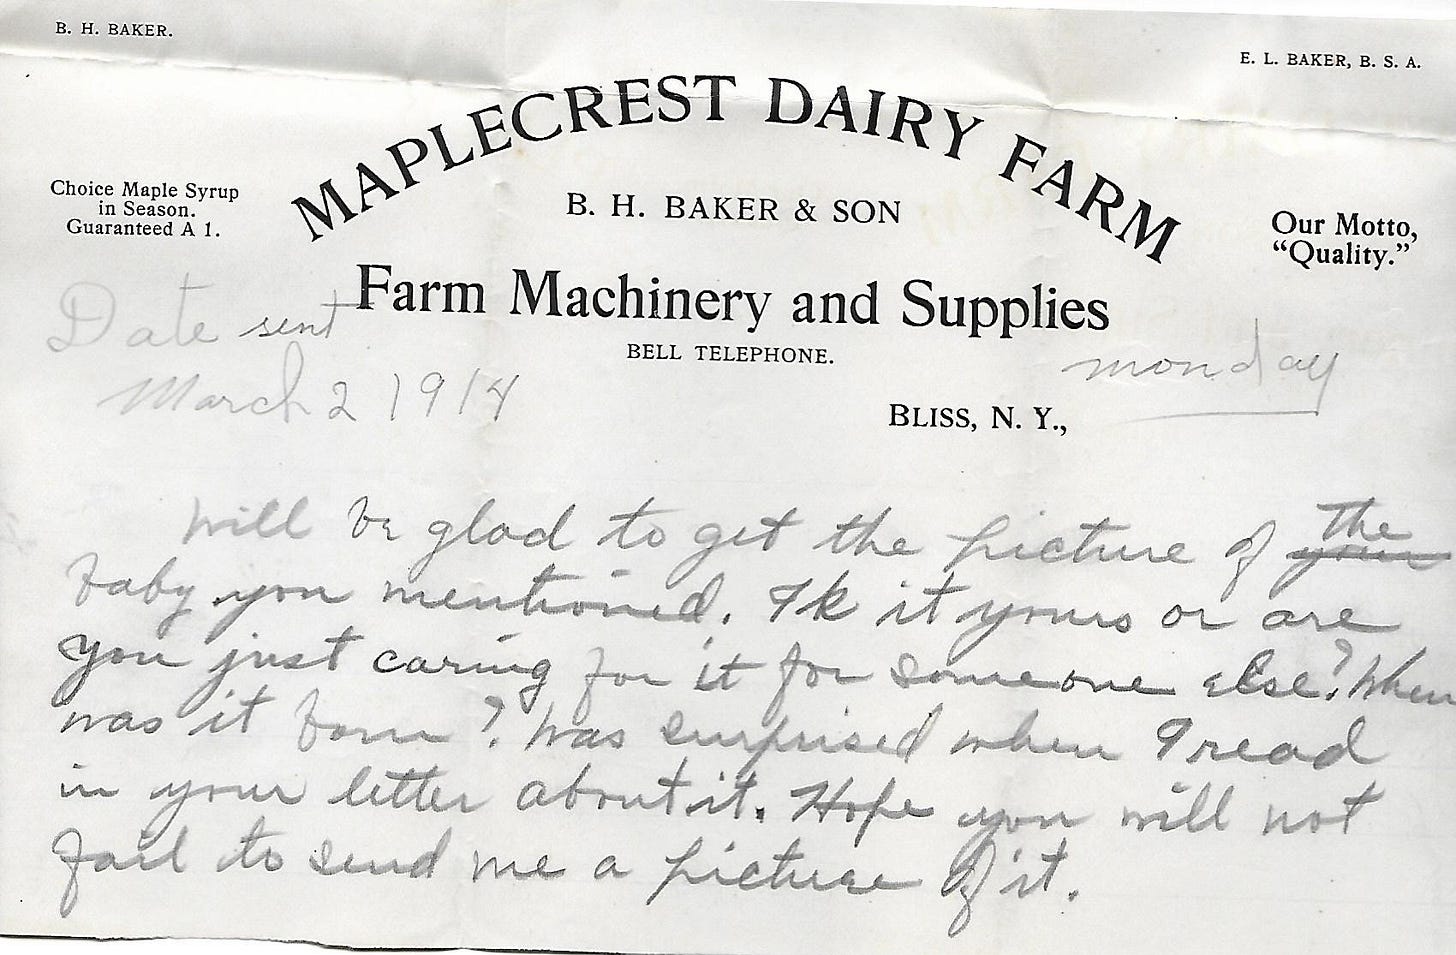 B. H. BAKER.
E. L. BAKER, B. S. A.
MAPLECREST DAIRY FARM
Choice Maple Syrup
in Season.
Guaranteed A 1.
B. H. BAKER & SON
Our Motto,
“Quality.”
Farm Machinery and Supplies
BELL TELEPHONE.
Date sent
March 2 1914
BLISS, N. Y.,
monday
Will be glad to get the picture of your the
baby you mentioned. Is it yours or are
you just caring for it for someone else? When
was it born? Was surprised when I read
in your letter about it. Hope you will not
fail to send me a picture of it.